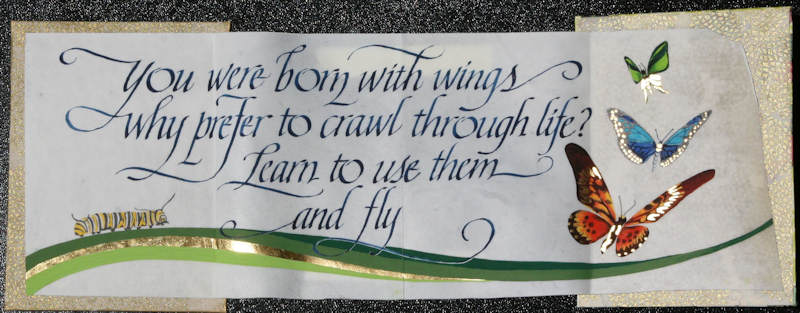 You were born with wings
why prefer to crawl through life?
Learn to use them
and fly